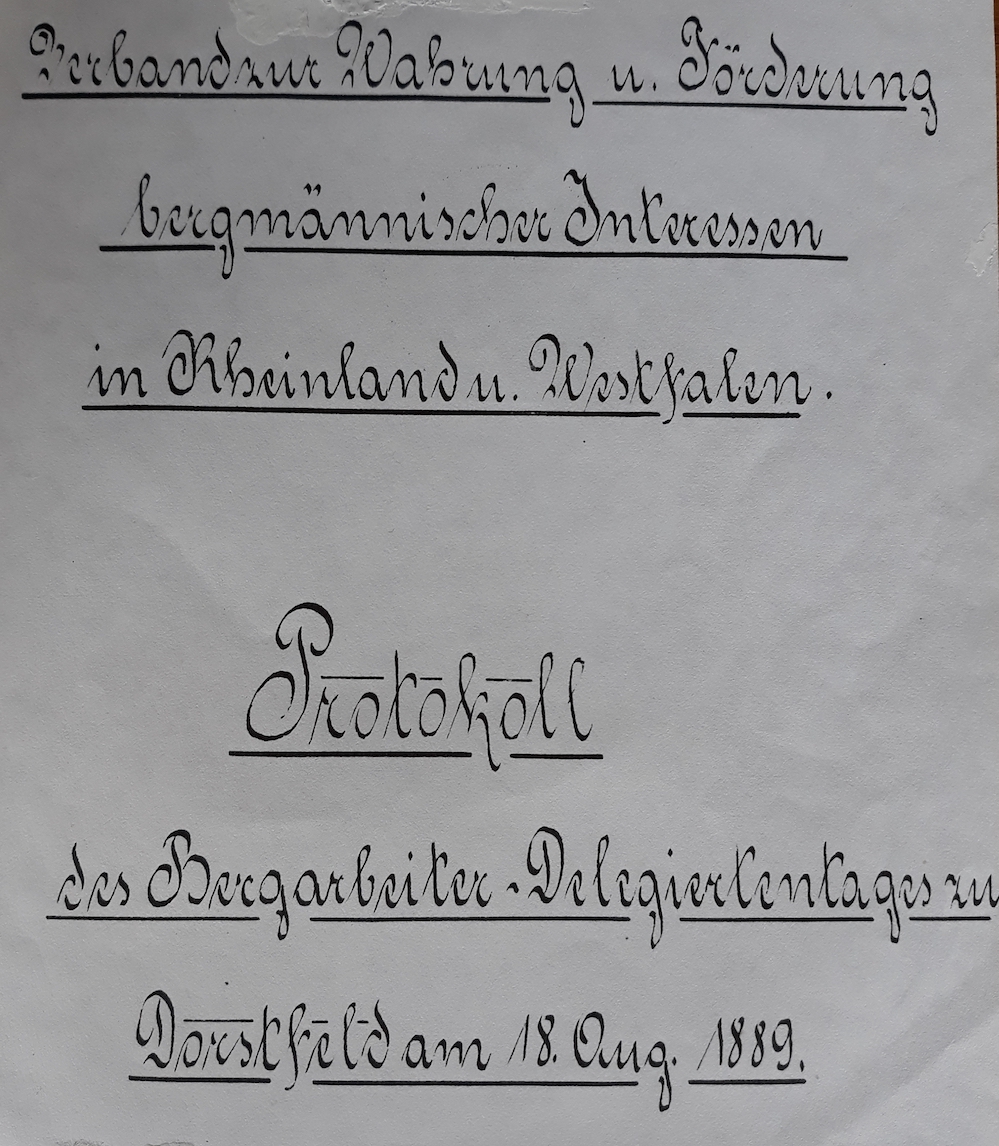 Verband zur Wahrung u. Förderung
bergmännischer Interessen
in Rheinland u. Westfalen.
Protokoll
des Bergarbeiter-Delegiertentages zu
Dorstfeld am 18. Aug. 1889.